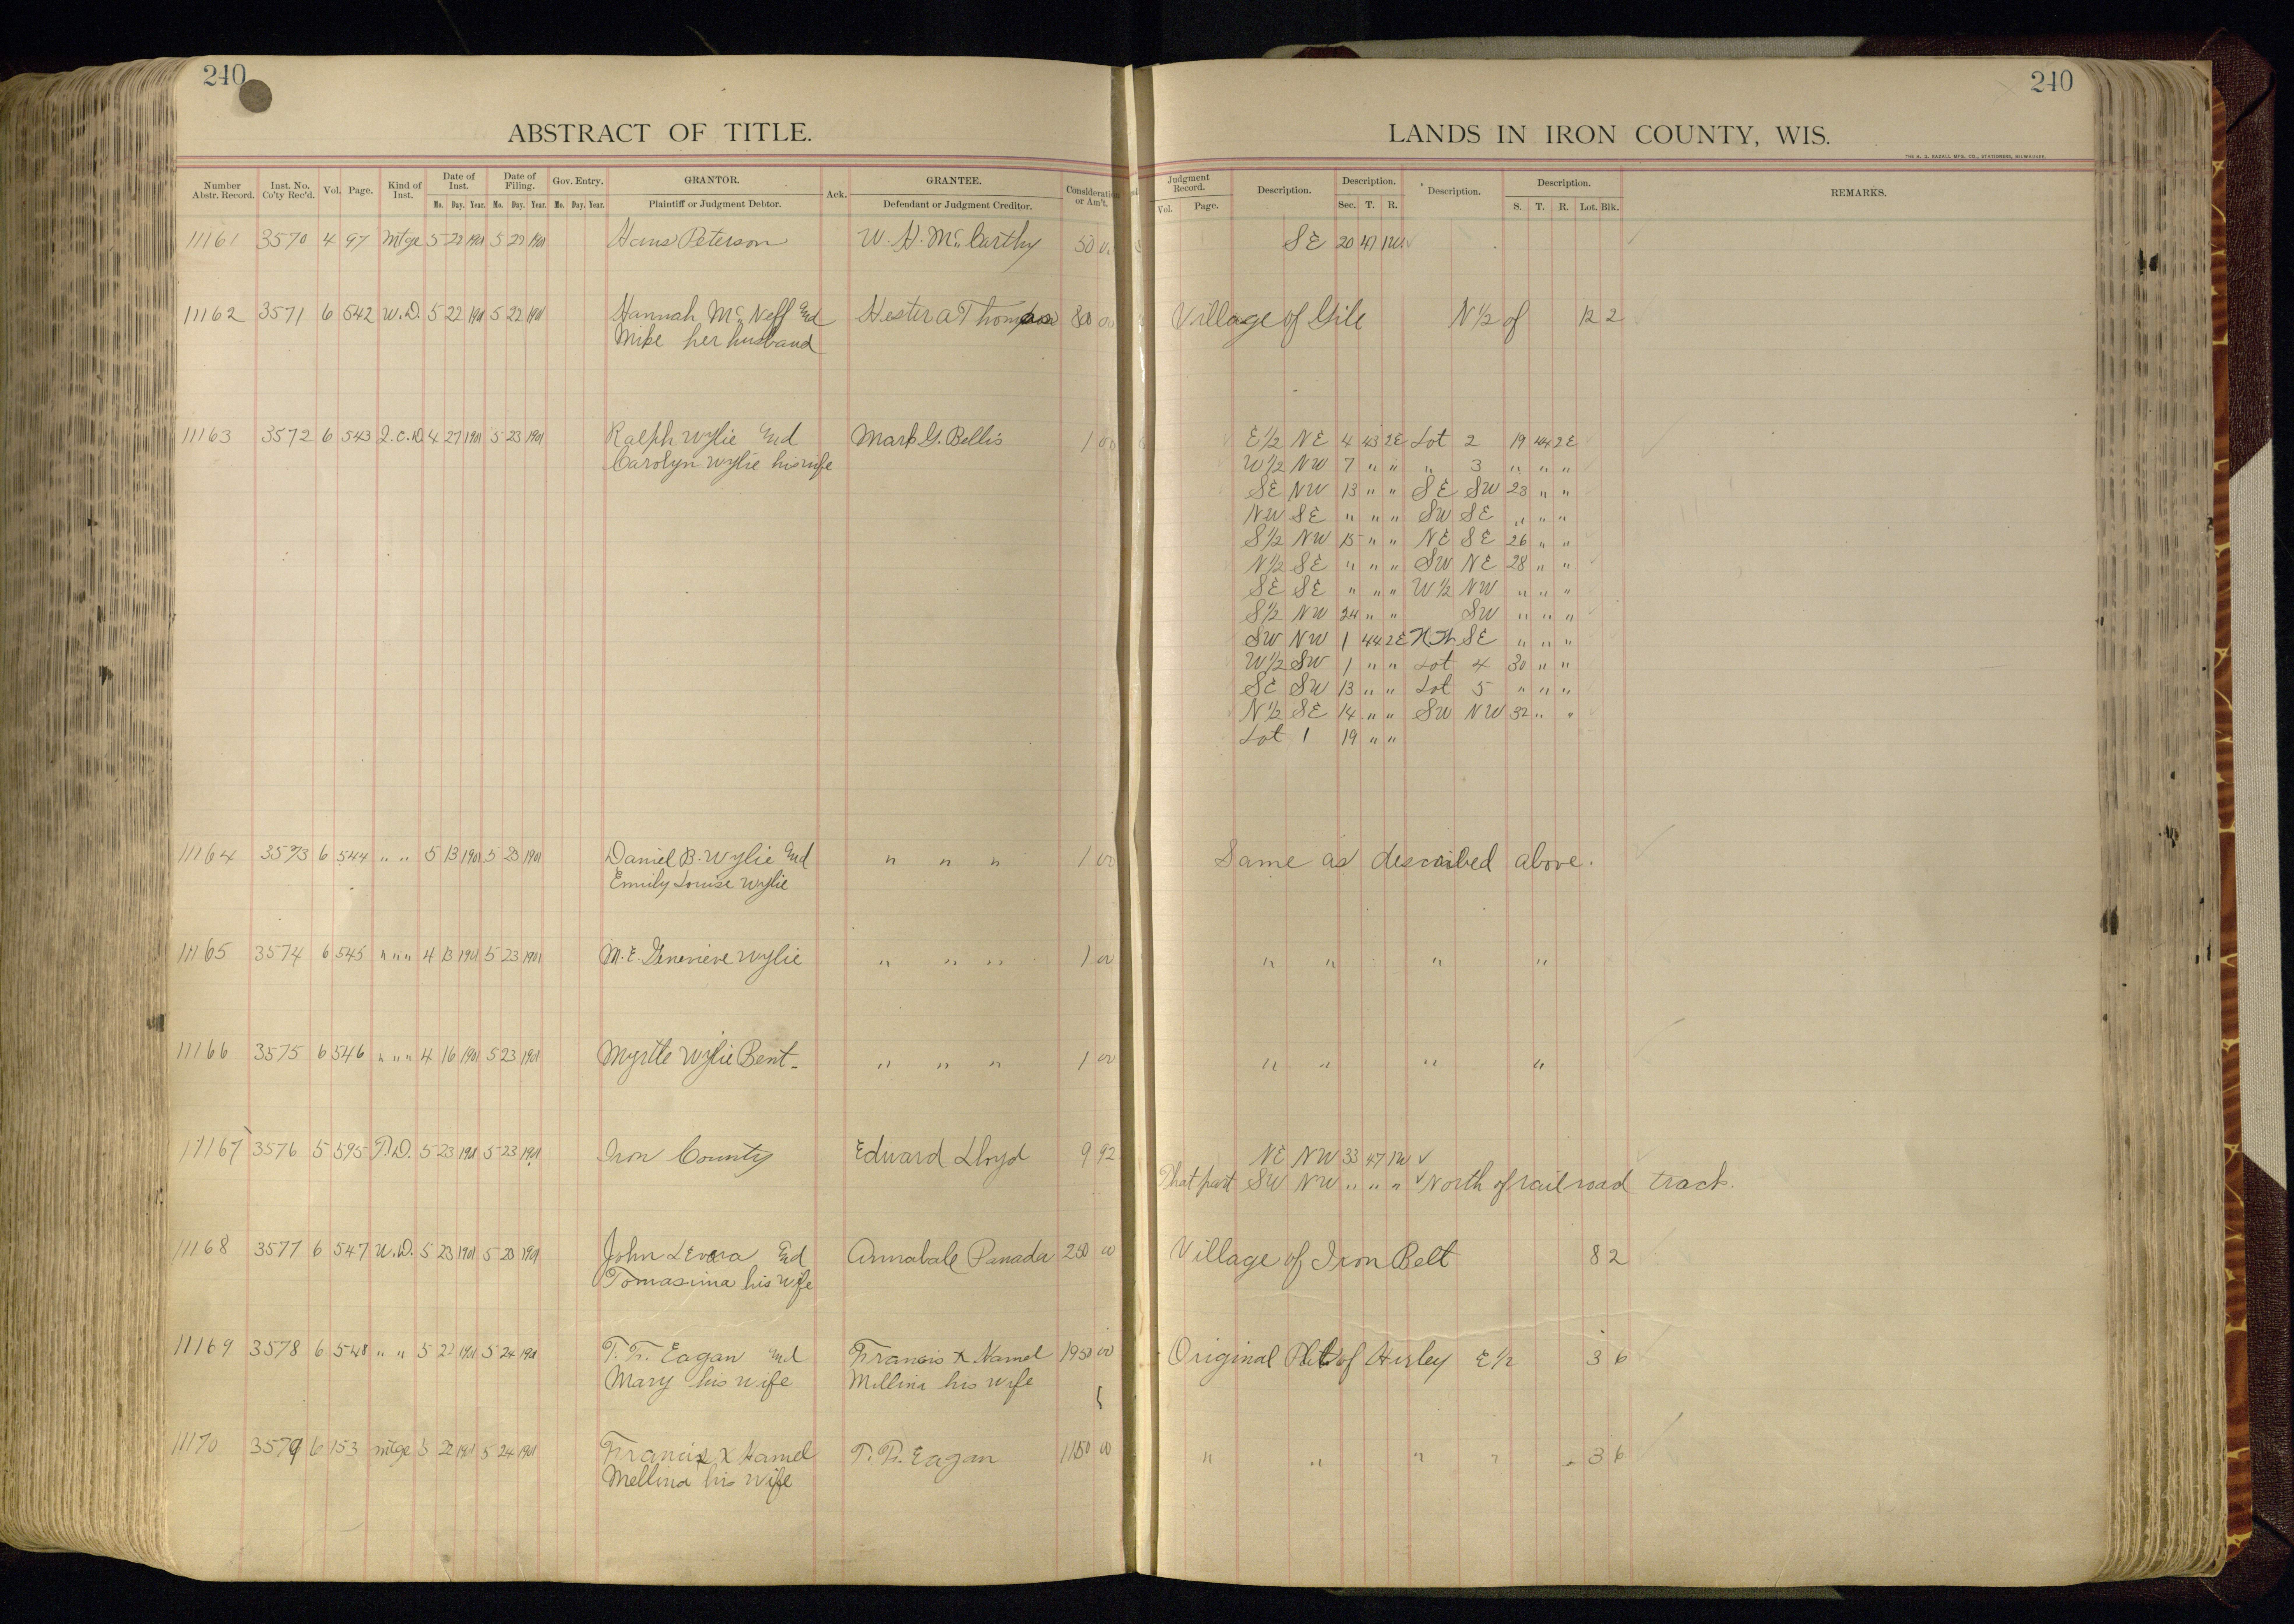 240
240
ABSTRACT OF TITLE.
LANDS IN IRON COUNTY, WIS.
THE H. G. RAZALL MFG. CO., STATIONERS, MILWAUKEE.
Number Abstr. Record. Inst. No. Co'ty Rec'd. Vol. Page. Kind of Inst. Date of Inst. Mo. Day. Year. Date of Filing. Mo. Day. Year. Gov. Entry. Mo. Day. Year. GRANTOR. Plaintiff or Judgment Debtor. Ack. GRANTEE. Defendant or Judgment Creditor. Consideration or Am't.
Judgment Record. Vol. Page. Description. Description. Sec. T. R. Description. Description. S. T. R. Lot. Blk. REMARKS.
11161 3570 4 97 Mtge 5 22 1901 5 22 1901 Hans Peterson W. H. McCarthy 50 SE 20 47 1W
11162 3571 6 542 W.D. 5 22 1901 5 22 1901 Hannah McNeff and Hester A Thompson 800 00 Village of Gile N½ of 12 2
Mike her husband
11163 3572 6 543 Q.C.D. 4 27 1901 5 23 1901 Ralph Wylie and Mark G. Bellis 1 00 E½ NE 4 43 2E Lot 2 19 44 2E
Carolyn Wylie his wife W½ NW 7 " " " 3 " " "
SE NW 13 " " SE SW 23 " "
NW SE " " " SW SE " " "
S½ NW 15 " " NE SE 26 " "
N½ SE " " " SW NE 28 " "
SE SE " " " W½ NW " " "
S½ NW 24 " " SW " " "
SW NW 1 44 2E SE " " "
W½ SW 1 " " Lot 4 30 " "
SE SW 13 " " Lot 5 " " "
N½ SE 14 " " SW NW 32 " "
Lot 1 19 " "
11164 3573 6 544 " " 5 13 1901 5 23 1901 Daniel B. Wylie and " " " 1 00 Same as described above.
Emily Louise Wylie
11165 3574 6 545 " " " 4 13 1901 5 23 1901 M. E. Genevieve Wylie " " " 1 00 " " " "
11166 3575 6 546 " " " 4 16 1901 5 23 1901 Myrtle Wylie Bent " " " 1 00 " " " "
11167 3576 5 595 T.D. 5 23 1901 5 23 1901 Iron County Edward Lloyd 9 92 NE NW 33 47 1W
That part SW NW " " " North of railroad track.
11168 3577 6 547 W.D. 5 23 1901 5 23 1901 John Levera and Annabale Panada 250 00 Village of Iron Belt 8 2
Tomasina his wife
11169 3578 6 548 " " 5 22 1901 5 24 1901 T. F. Eagan and Francis X Hamel 1950 00 Original Plat of Hurley E½ 3 6
Mary his wife Mellina his wife
11170 3579 6 153 mtge 5 22 1901 5 24 1901 Francis X Hamel T. F. Eagan 1150 00 " " " " 3 6
Mellina his wife